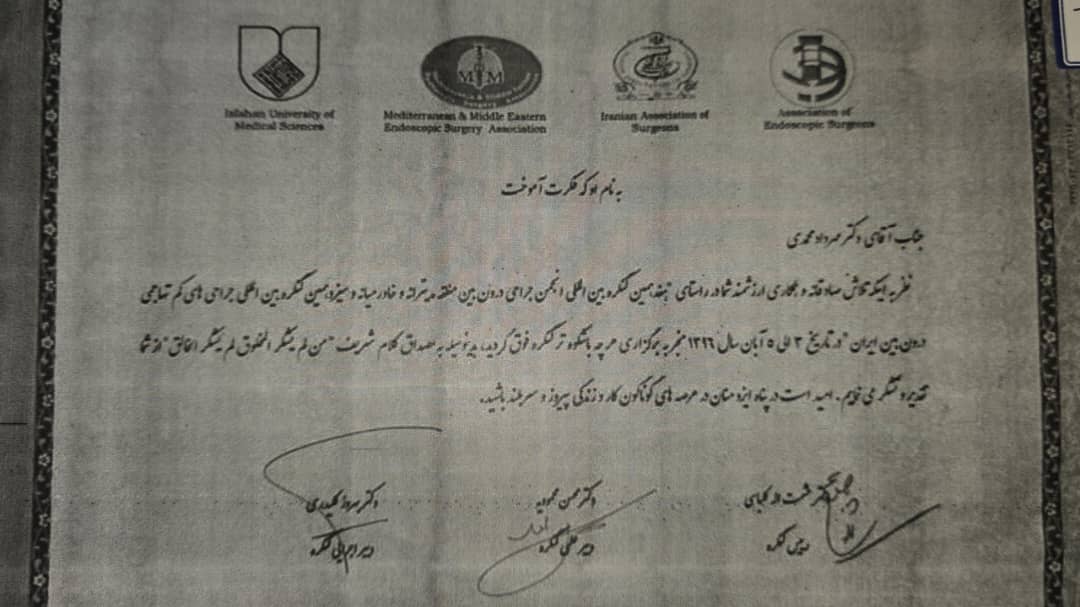 Isfahan University of
Medical Sciences
Mediterranean & Middle Eastern
Endoscopic Surgery Association
Iranian Association of
Surgeons
Association of
Endoscopic Surgeons
به نام او که فکرت آموخت
جناب آقای دکتر مهرداد محمدی
نظر به اینکه تلاش صادقانه و همکاری ارزشمند شما در راستای "هفدهمین کنگره بین المللی انجمن جراحی درون بین منطقه مدیترانه و خاورمیانه و سیزدهمین کنگره بین المللی جراحی های کم تهاجمی
درون بین ایران" در تاریخ ۳ الی ۵ آبان سال ۱۳۹۶ منجر به برگزاری هر چه باشکوه تر کنگره فوق گردید، بدینوسیله به مصداق کلام شریف "من لم یشکر المخلوق لم یشکر الخالق" از شما
تقدیر و تشکر می نماییم. امید است در پناه ایزد منان در عرصه های گوناگون کار و زندگی پیروز و سربلند باشید.
دکتر حشمت اله
رییس کنگره
دکتر محسن محمودیه
دبیر علمی کنگره
دکتر بهروز کلیدری
دبیر اجرایی کنگره